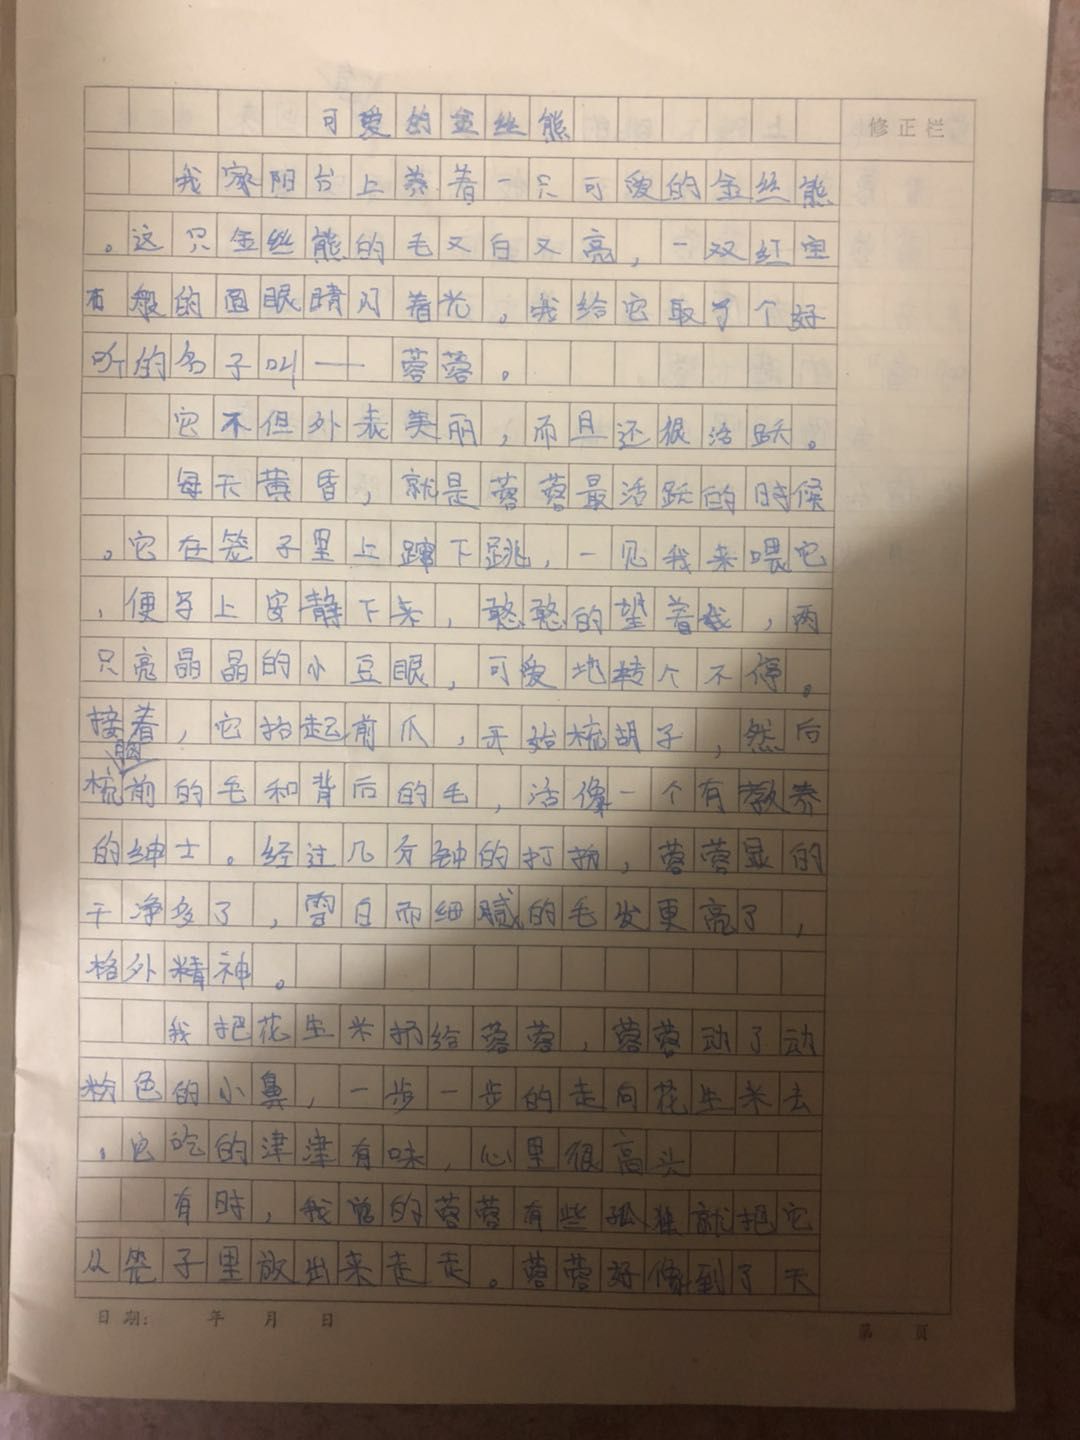 可爱的金丝熊
修正栏
我家阳台上养着一只可爱的金丝熊
。这只金丝熊的毛又白又亮，一双红宝
石般的圆眼睛闪着光。我给它取了个好
听的名子叫——蓉蓉。
它不但外表美丽，而且还很活跃。
每天黄昏，就是蓉蓉最活跃的时候
。它在笼子里上蹿下跳，一见我来喂它
，便马上安静下来，憨憨的望着我，两
只亮晶晶的小豆眼，可爱地转个不停。
接着，它抬起前爪，开始梳胡子，然后
梳胸前的毛和背后的毛，活像一个有教养
的绅士。经过几分钟的打扮，蓉蓉显的
干净多了，雪白而细腻的毛发更亮了，
格外精神。
我把花生米扔给蓉蓉，蓉蓉动了动
粉色的小鼻，一步一步的走向花生米去
。它吃的津津有味，心里很高兴
有时，我觉的蓉蓉有些孤独就把它
从笼子里放出来走走。蓉蓉好像到了天
日期： 年 月 日
第 页